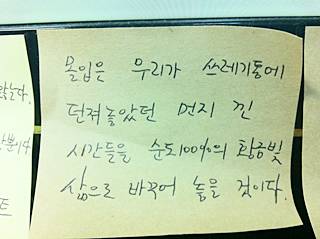 몰입은 우리가 쓰레기통에
던져놓았던 먼지 낀
시간들을 순도100%의 황금빛
삶으로 바꾸어 놓을 것이다.
트